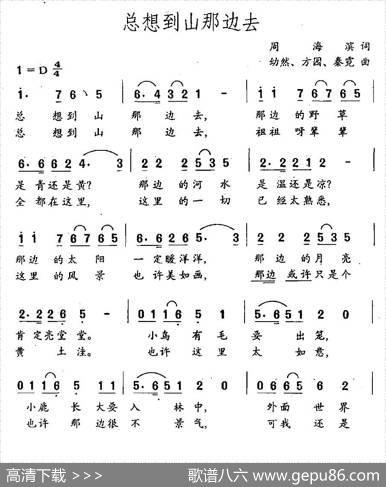 总想到山那边去
周海滨 词
1=D 4/4
幼然、方园、秦霓 曲
1· 7 6 5 6·4 3 2 1 — i i 7 6 7 6 5
总 想到山 那 边去， 那边的野草
总 想到山 那 边去， 祖祖呀辈辈
3·6 6 6 2 4· 3 2 2 2 5 3 5 2·2 2 1 —
是青还是黄？ 那边 的河水 是温还是凉？
全都在这里， 这里 的一切 已经太熟悉，
i i 7 6 7 6 5 6·6 5 6 2 6 5· 3 2 2 2 5 3 5
那边的太阳 一定暖洋洋， 那边 的月亮
这里的风景 也许美如画， 那边 或许只是个
2·2 2 6 5 — 0 1 1 6 5 1 5·6 5 1 2 —
肯定亮堂堂。 小鸟有毛 要 出笼，
黄 土洼。 也许这里 太 如意，
0 1 1 6 5 1 5·6 5 1 2 — 0 1 1 6 5 1
小鹿长大要 入 林中， 外面世界
也许那边很 不 景气， 可我还是
高清下载 >>>
歌谱八六 www.gepu86.com